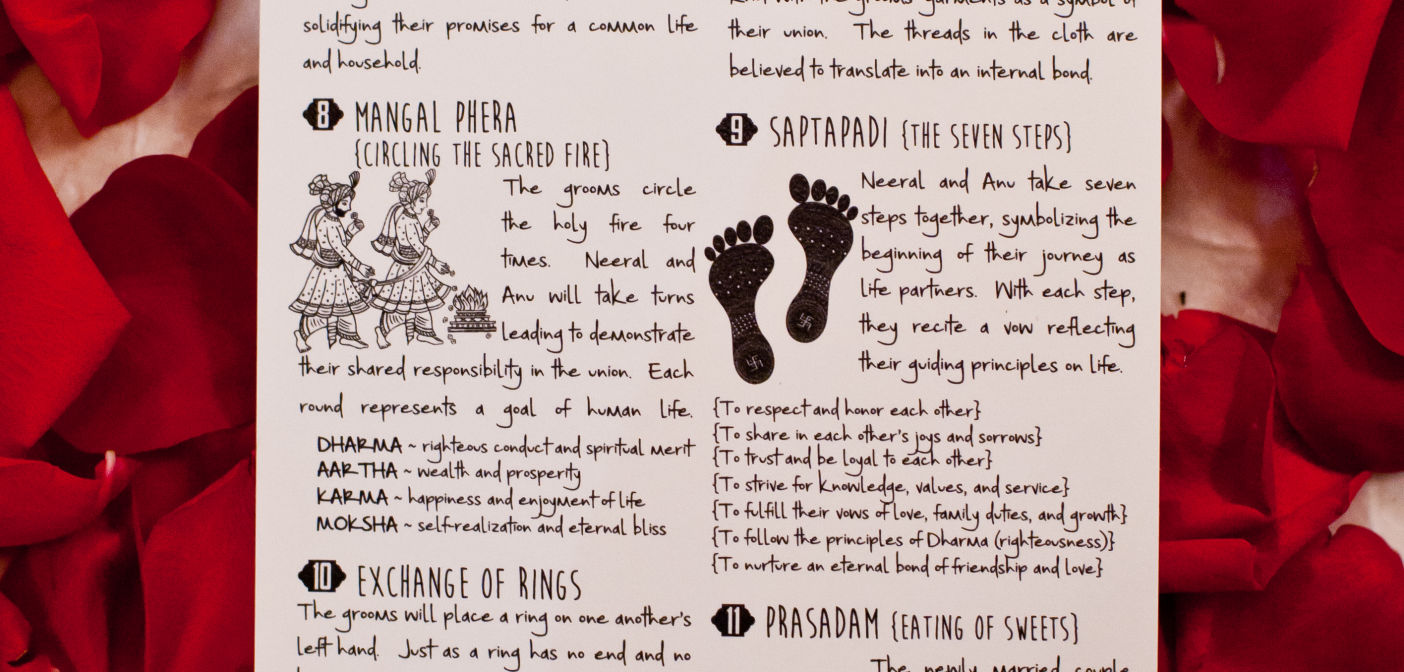 solidifying their promises for a common life
and household.
their union. The threads in the cloth are
believed to translate into an internal bond.
8 MANGAL PHERA
{CIRCLING THE SACRED FIRE}
The grooms circle
the holy fire four
times. Neeral and
Anu will take turns
leading to demonstrate
their shared responsibility in the union. Each
round represents a goal of human life.
DHARMA ~ righteous conduct and spiritual merit
AARTHA ~ wealth and prosperity
KARMA ~ happiness and enjoyment of life
MOKSHA ~ self-realization and eternal bliss
9 SAPTAPADI {THE SEVEN STEPS}
Neeral and Anu take seven
steps together, symbolizing the
beginning of their journey as
life partners. With each step,
they recite a vow reflecting
their guiding principles on life.
{To respect and honor each other}
{To share in each other's joys and sorrows}
{To trust and be loyal to each other}
{To strive for knowledge, values, and service}
{To fulfill their vows of love, family duties, and growth}
{To follow the principles of Dharma (righteousness)}
{To nurture an eternal bond of friendship and love}
10 EXCHANGE OF RINGS
The grooms will place a ring on one another's
left hand. Just as a ring has no end and no
11 PRASADAM {EATING OF SWEETS}
The newly married couple